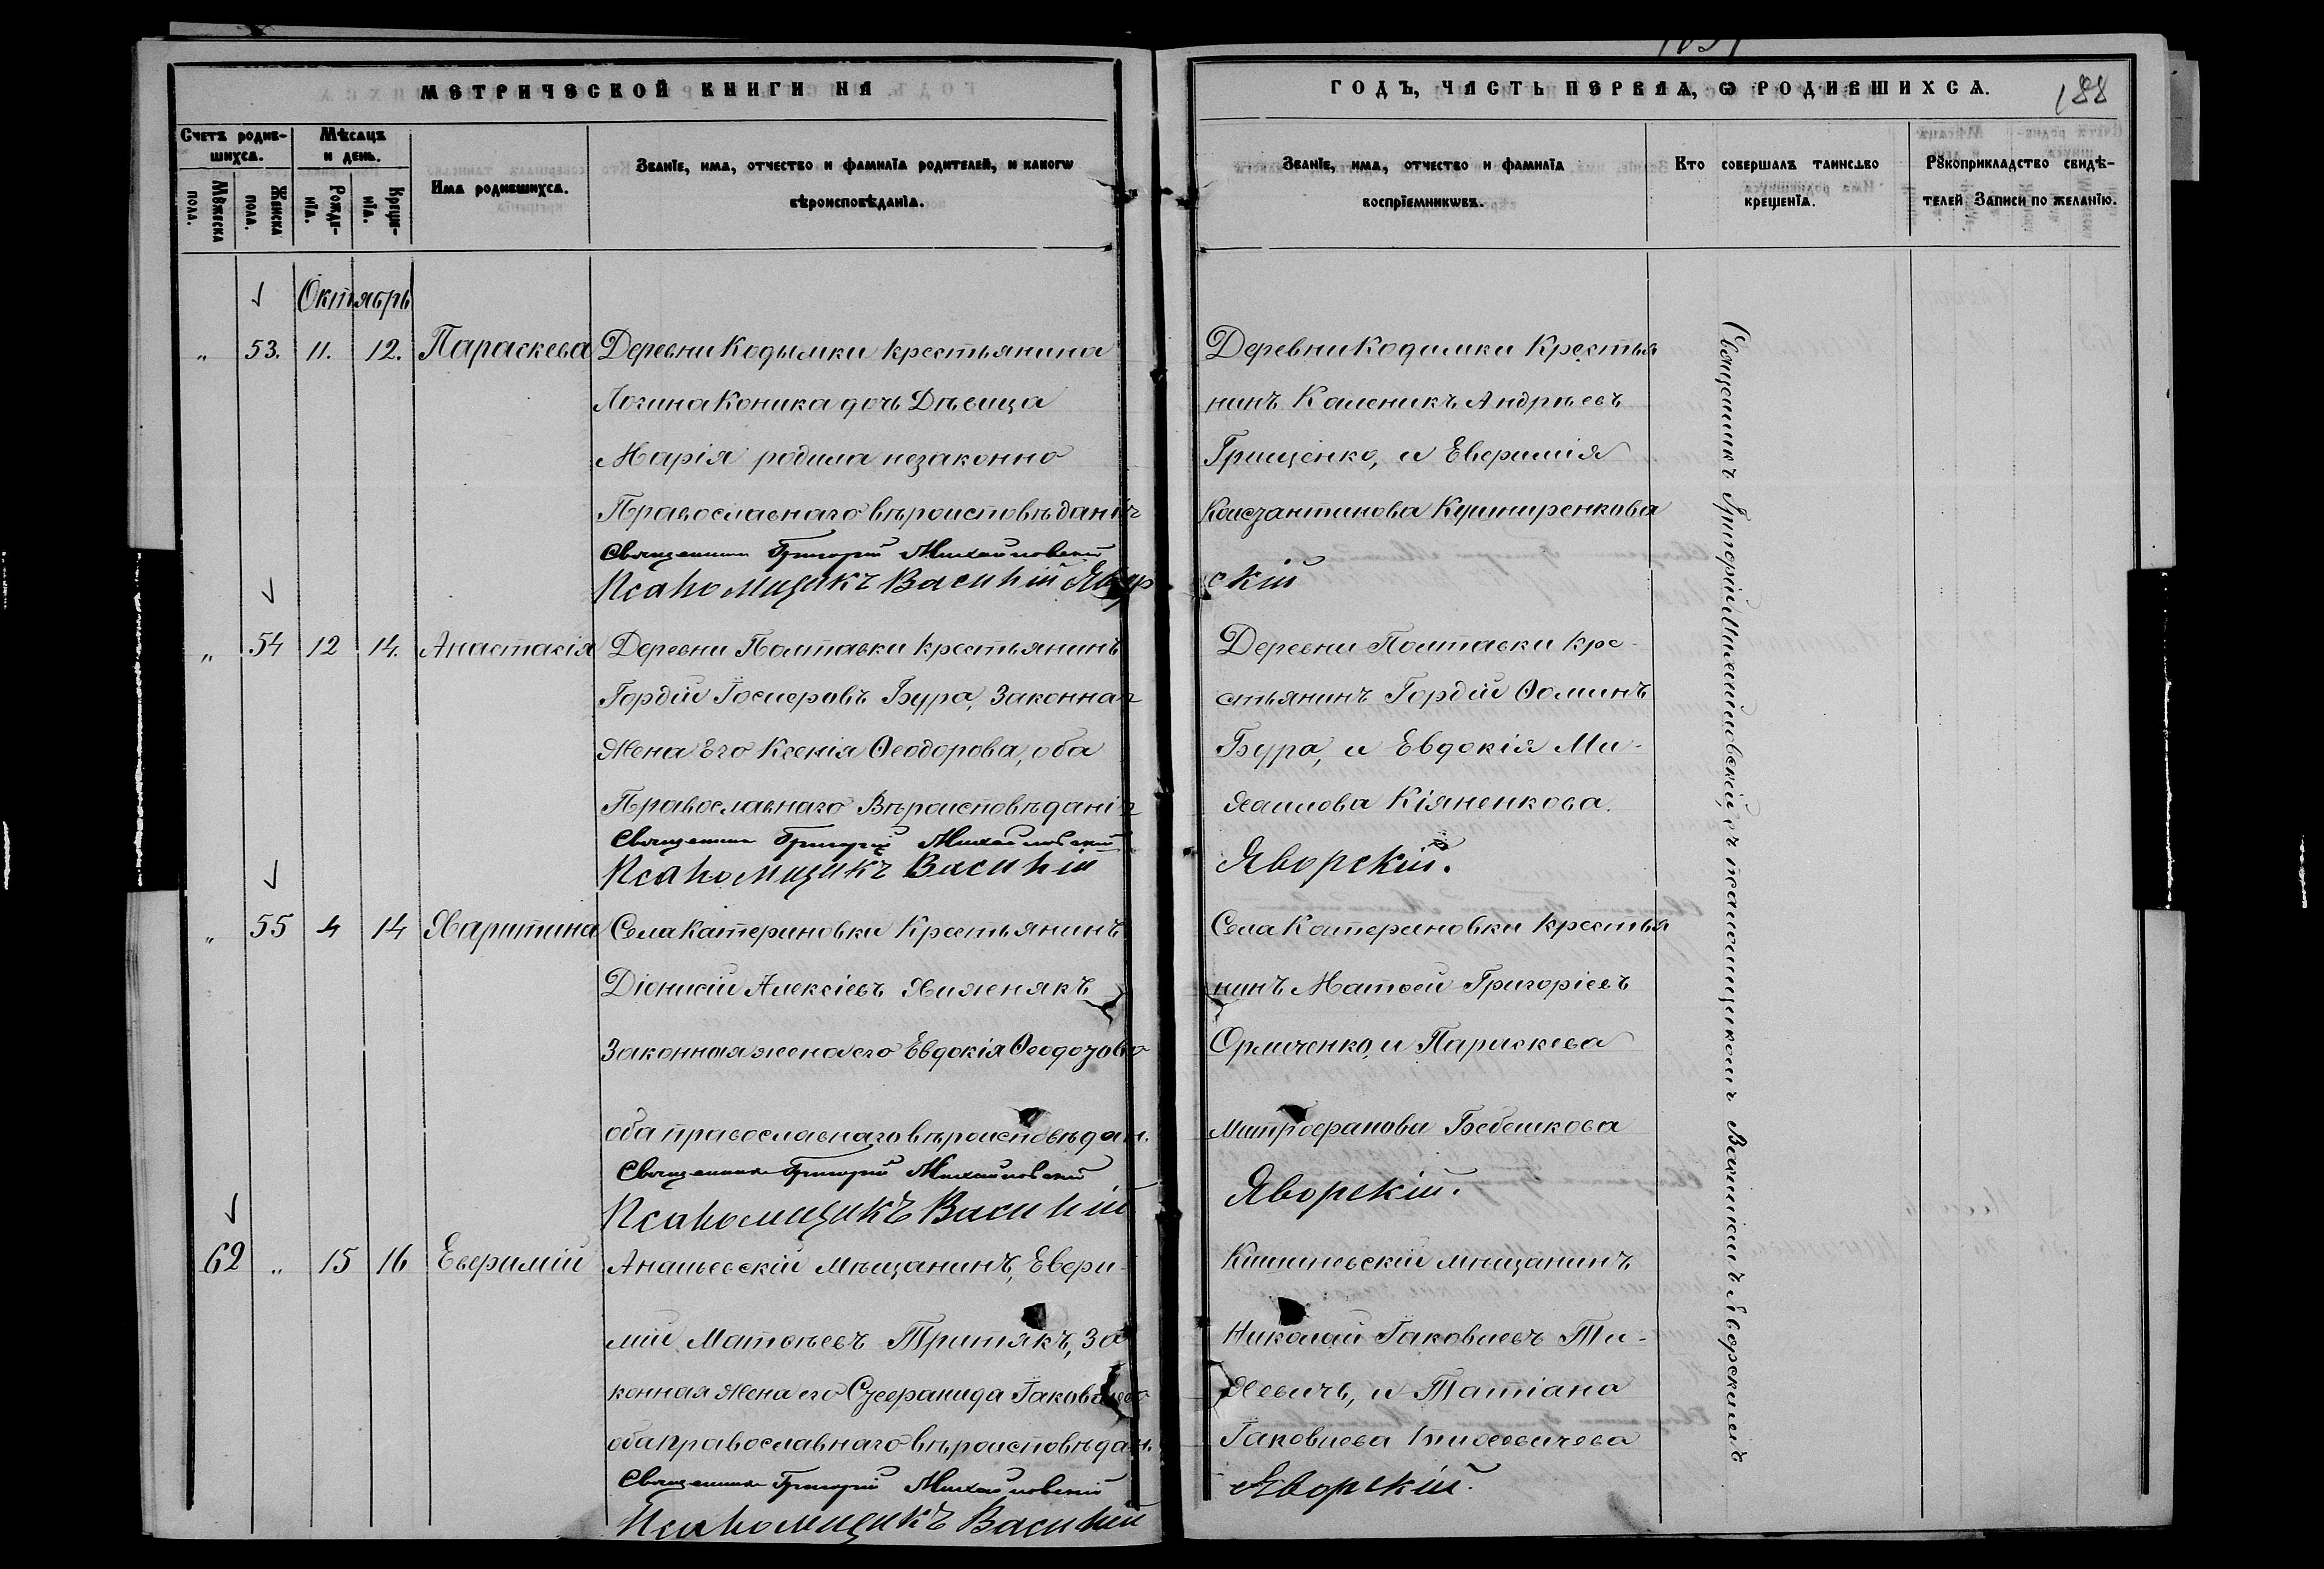 МЕТРИЧЕСКОЙ КНИГИ НА
ГОДЪ, ЧАСТЬ ПЕРВАЯ, Ѡ РОДИВШИХСѦ.
188
Счетъ родив-
шихсѧ.
Мѣсѧцъ
и день.
Мꙋжеска
пола.
Женска
пола.
Рожде-
нїѧ.
Креще-
нїѧ.
Имѧ родившихсѧ.
Званїе, имѧ, отчество и фамилїѧ родителей, и какогѡ
вѣроисповѣданїѧ.
Званїе, имѧ, отчество и фамилїѧ
воспрїемникѡвъ.
Кто совершалъ таинство
крещенїѧ.
Рꙋкоприкладство свидѣ-
телей Записи по желанїю.
Октябрь
„ 53. 11. 12. Параскева Деревни Кодымки крестьянина
Логина Коника дочь Дѣвица
Марія родила незаконно
Православнаго вѣроисповѣданія
Священникъ Григорій Михайловскій
Псаломщикъ Василій Явор
Деревни Кодымки Крестья
нинъ Каленикъ Андрѣевъ
Грищенко, и Евфимія
Констзантинова Кушниренкова
скій
Священникъ Григорій Михайловскій съ псаломщикомъ Василіемъ Яворскимъ
„ 54 12 14. Анастасія Деревни Полтавки крестьянинъ
Гордій Іосифовъ Бура, Законная
Жена Его Ксенія Ѳеодорова, оба
Православнаго Вѣроисповѣданія
Священникъ Григорій Михайловскій
Псаломщикъ Василій
Деревни Полтавки кре-
стьянинъ Гордій Ѳоминъ
Бура, и Евдокія Ми-
хаилова Кіяненкова.
Яворскій.
„ 55 4 14 Харитина Села Катериновки Крестьянинъ
Діонисій Алексіевъ Хиженякъ
Законная жена его Евдокія Ѳеодозова
оба православнаго вѣроисповѣдан.
Священникъ Григорій Михайловскій
Псаломщикъ Василій
Села Катериновки крестья
нинъ Матѳей Григоріевъ
и Параскева
Митрофанова Бебешкова
Яворскій.
62 „ 15 16 Евфимій Ананьевскій мѣщанинъ, Евфи-
мій Матвѣевъ Третякъ, За
конная Жена его Сзерафанида Іаковлева
оба православнаго вѣроисповѣдан.
Священникъ Григорій Михайловскій
Псаломщикъ Василій
Кишиневскій мѣщанинъ
Николай Іаковлевъ Ти-
хевичъ, и Татіана
Іаковлева
Яворскій.